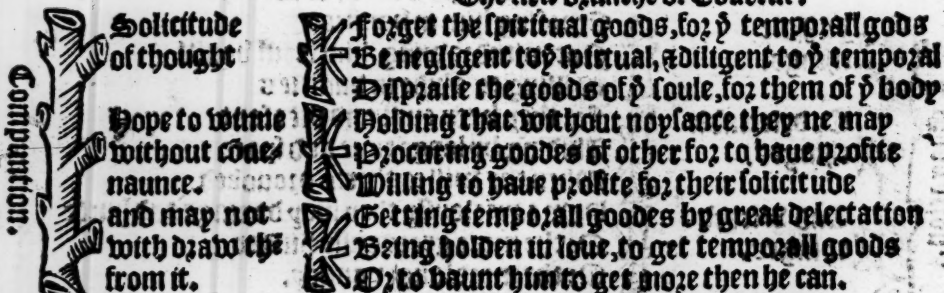 Solicitude
of thought
Hope to winne
without cōue⸗
naunce.
and may not
with draw thē
from it.
Forget the spiritual goods, for yͤ temporall gods
Be negligent to yͤ spiritual, & diligent to yͤ temporal
Dispraise the goods of yͤ soule, for them of yͤ body
Holding that without noysance they ne may
Procuring goodes of other for to haue profite
Willing to haue profite for their solicitude
Getting temporall goodes by great delectation
Being holden in loue, to get temporall goods
Or to vaunt him to get more then he can.